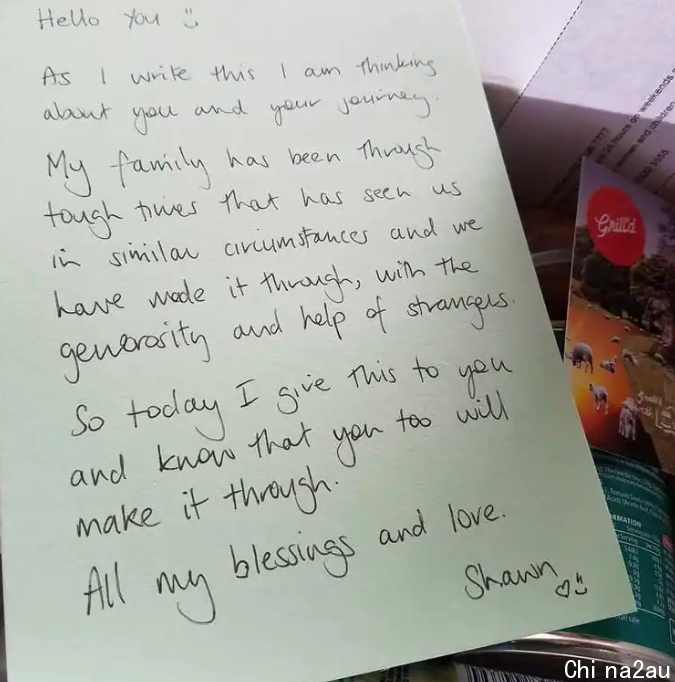 Hello You
As I write this I am thinking
about you and your journey.
My family has been through
tough times that has seen us
in similar circumstances and we
have made it through, with the
generosity and help of strangers.
So today I give this to you
and know that you too will
make it through.
All my blessings and love.
Shawn
on weekends
women and children
Grill'd
Chi na2au